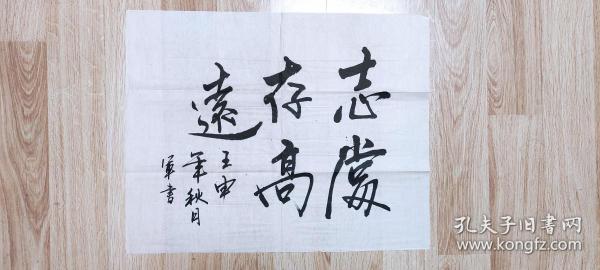 志當
存高
遠
壬申
年秋月
軍書
孔夫子旧书网
www.kongfz.com